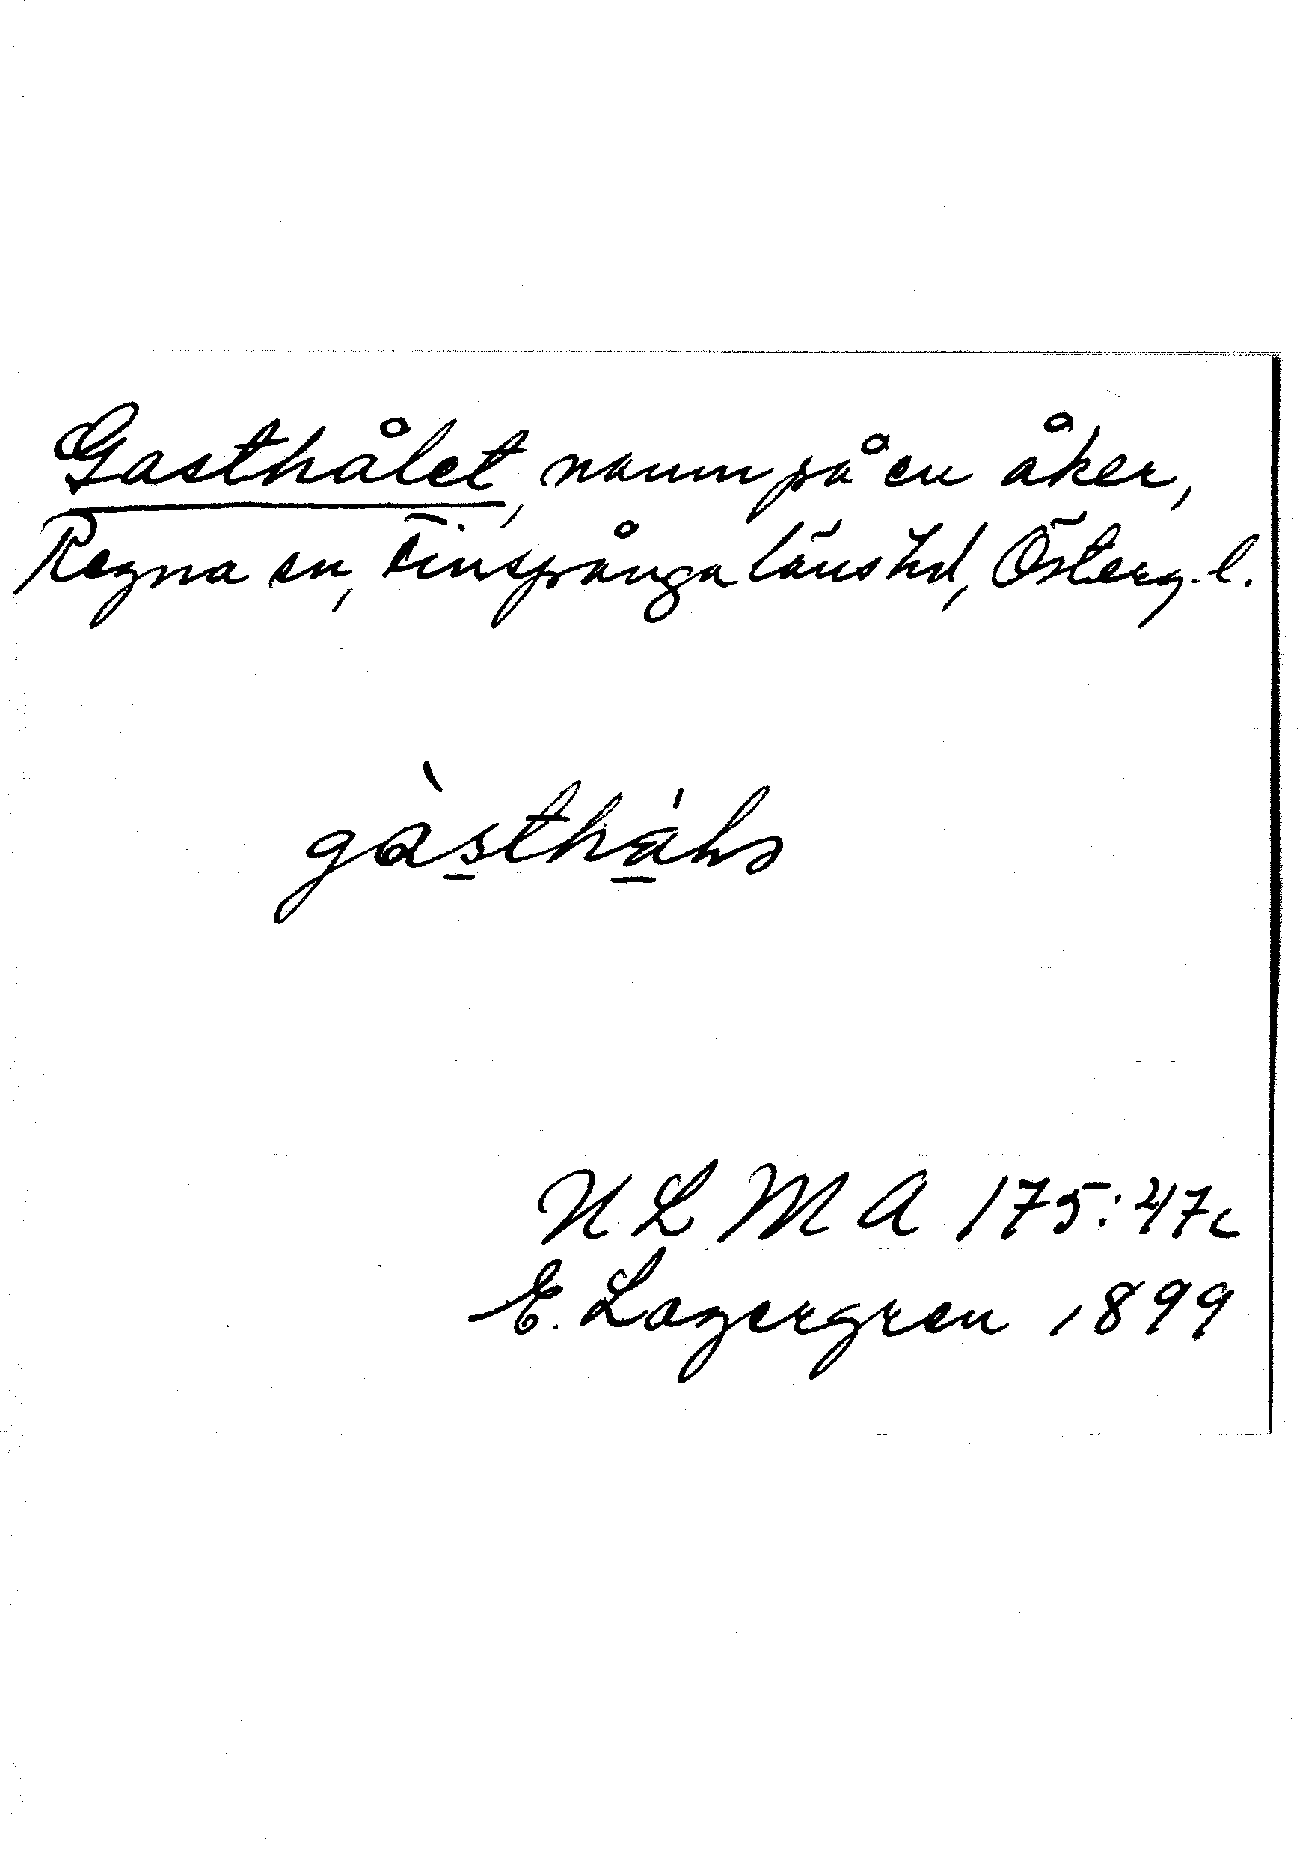 Gasthålet, namn på en åker,
Regna sn, Finspånga läns hd, Österg. l.
N L M A 175:47c
E. Lagergren 1899